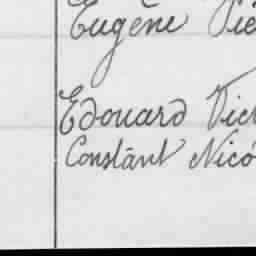 Eugène Vie
Edouard Vict
Constant Nico